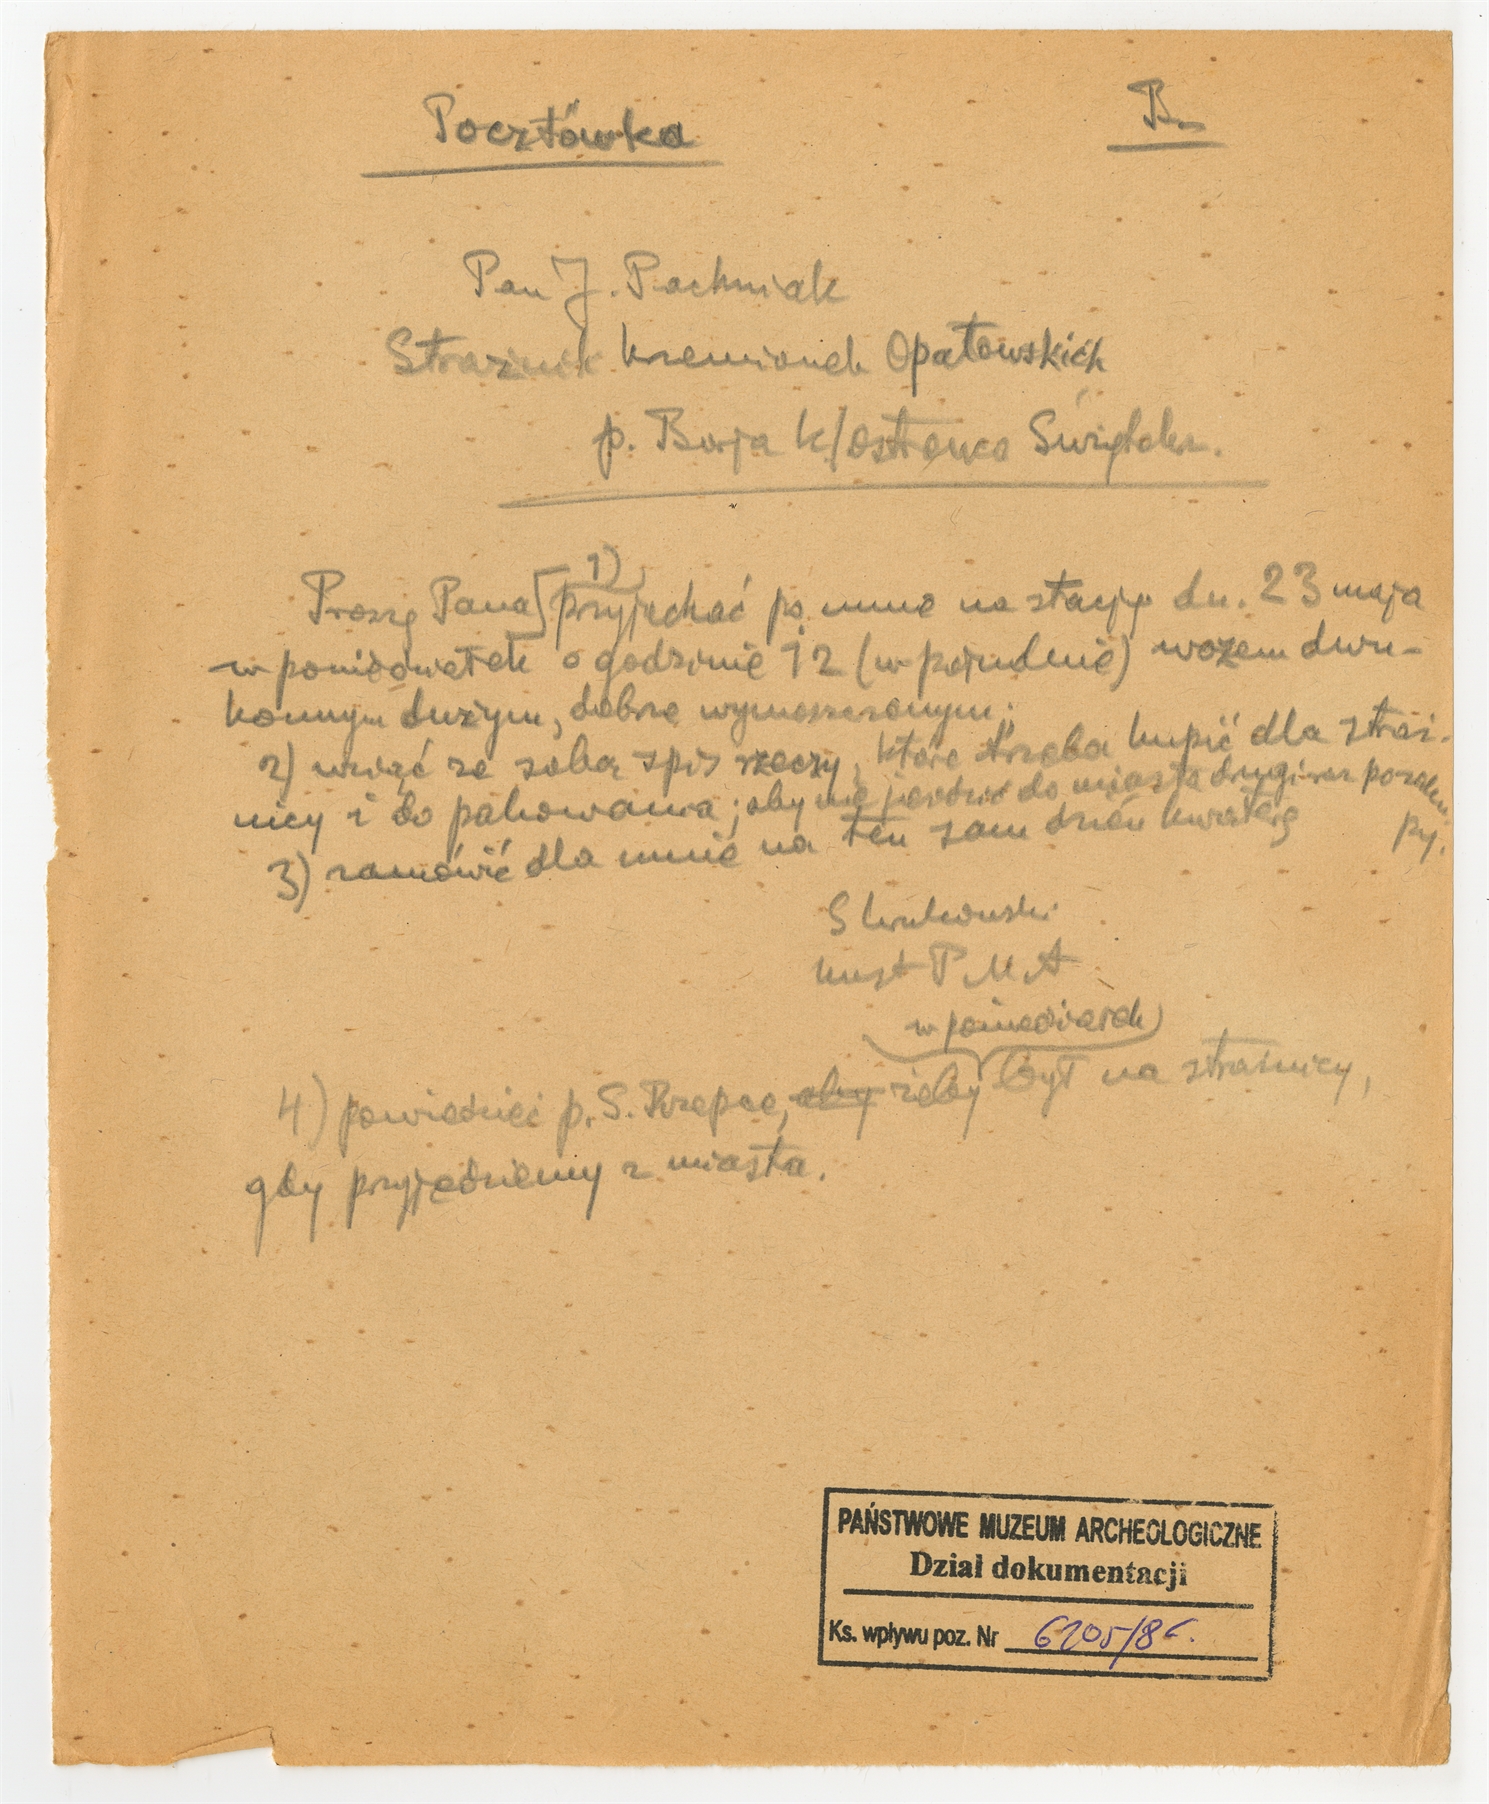 Pocztówka
B.
Pan J. Pachniak
Strażnik krzemionek Opatowskich
p. Borja k/Ostrowca Świętokrz.
Proszę Pana [1) przyjechać po mnie na stację dn. 23 maja
w poniedziałek o godzinie 12 (w południe) wozem dwu-
konnym dużym, dobrze wymoszczonym;
2) wziąć ze sobą spis rzeczy, które trzeba kupić dla straż-
nicy i do pakowania; aby nie jeździć do miasta drugi raz po zaku-
py.
3) zamówić dla mnie na ten sam dzień kwaterę
S Krukowski
kust P M A
w poniedziałek
4) powiedzieć p. S. Rzepce, aby żeby był na strażnicy,
gdy przyjedziemy z miasta.
PAŃSTWOWE MUZEUM ARCHEOLOGICZNE
Dział dokumentacji
Ks. wpływu poz. Nr 6205/86.